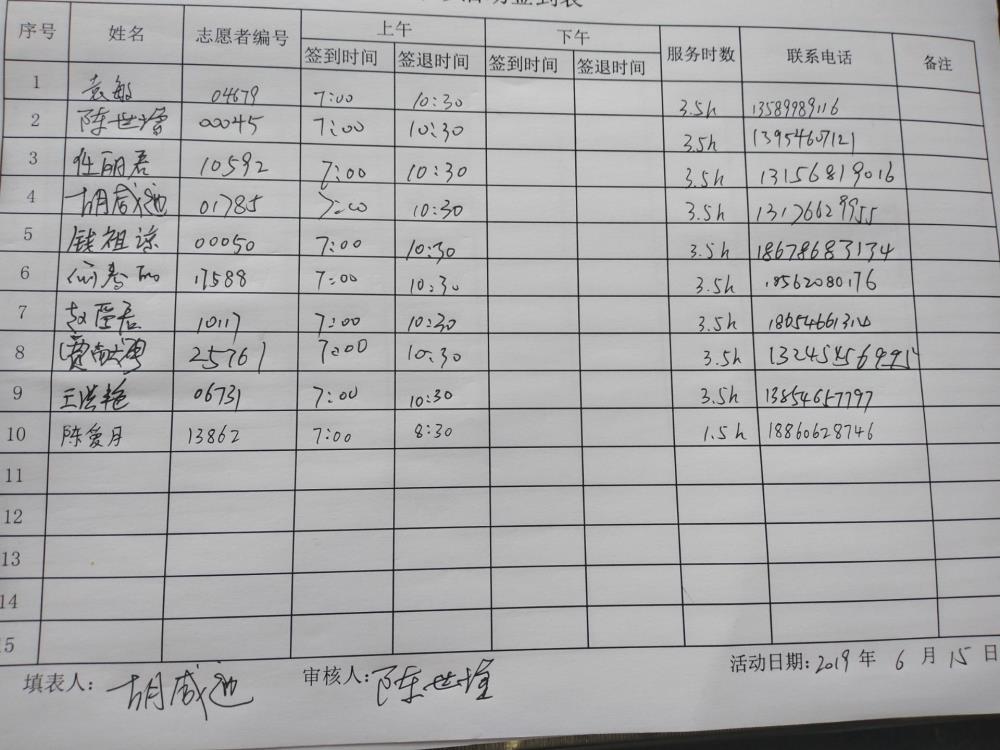 活动签到表
序号 姓名 志愿者编号 上午 下午 服务时数 联系电话 备注
签到时间 签退时间 签到时间 签退时间
1 袁敏 04679 7:00 10:30 3.5h 13589989116
2 陈世增 00045 7:00 10:30 3.5h 13954607121
3 任丽君 10592 7:00 10:30 3.5h 13156819016
4 胡咸池 01785 7:00 10:30 3.5h 13176628955
5 钱祖谅 00050 7:00 10:30 3.5h 18678683134
6 17588 7:00 10:30 3.5h 18562080176
7 10117 7:00 10:30 3.5h
8 25761 7:00 10:30 3.5h
9 王洪艳 06731 7:00 10:30 3.5h 13854657797
10 陈爱月 13862 7:00 8:30 1.5h 18860628746
11
12
13
14
15
填表人: 胡咸池 审核人: 陈世增 活动日期: 2019 年 6 月 15 日